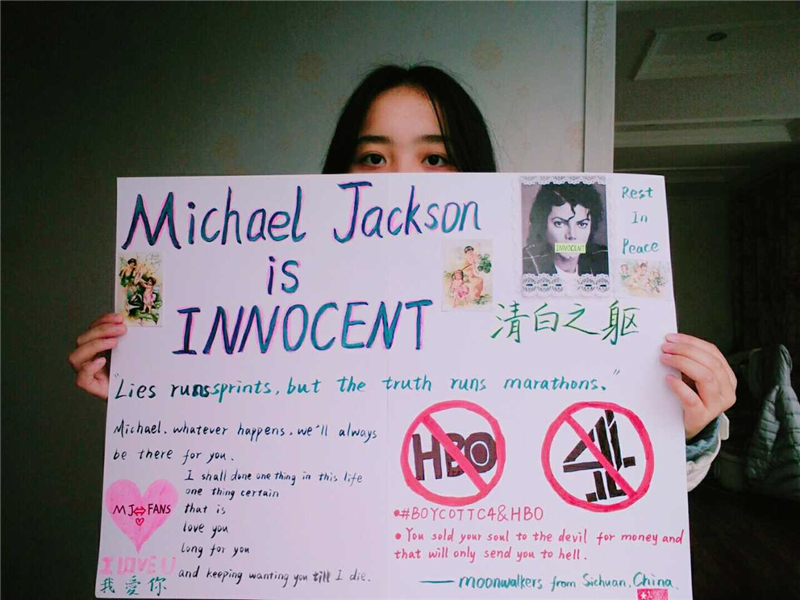 Michael Jackson
is
INNOCENT
INNOCENT
Rest
In
Peace
清白之躯
"Lies runs sprints, but the truth runs marathons."
Michael, whatever happens, we'll always
be there for you.
I shall done one thing in this life
one thing certain
that is
love you
long for you
and keeping wanting you till I die.
MJ⇔FANS
I LOVE U
我爱你
HBO
4
•#BOYCOTTC4&HBO
•You sold your soul to the devil for money and
that will only send you to hell.
——moonwalkers from Sichuan, China.